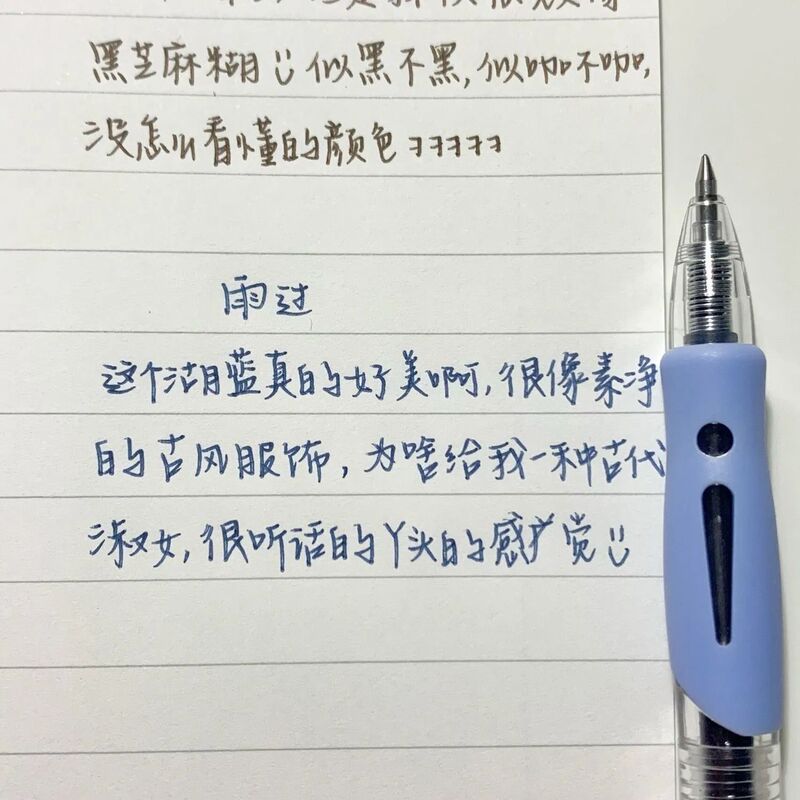 黑芝麻糊似黑不黑,似咖不咖,
没怎么看懂的颜色ヨヨヨヨヨ
雨过
这个湖蓝真的好美啊,很像素净
的古风服饰,为啥给我一种古代
淑女,很听话的丫头的感觉